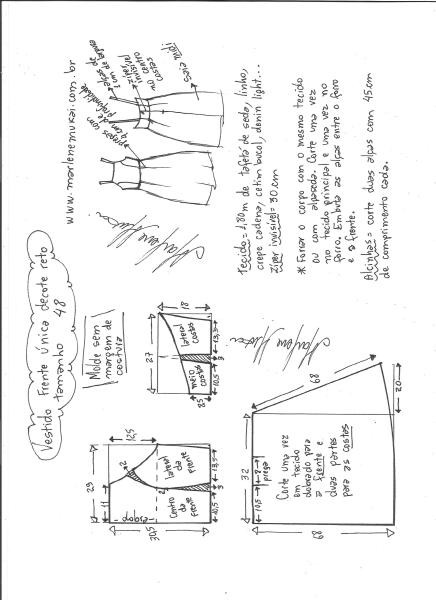 Vestido frente única decote reto
tamanho 48
www.marlenemukai.com.br
Molde sem
margem de
costura
29
11
12,5
2
2
30,5
dobra
centro
da
frente
lateral
da
frente
10,5
3
13,5
27
18
25
meio
costas
lateral
costas
10,5
3
13,5
pregas com
4cm de
profundidade
alças de
1 cm de largura
zíper
invisível
no centro
costas
saia midi
Marlene Mukai
Tecido = 1,80m de tafetá de seda, linho,
crepe cadena, cetim bucol, denim light...
Zíper invisível = 30cm
* Forrar o corpo com o mesmo tecido
ou com alpaseda. Corte uma vez
no tecido principal e uma vez no
forro. Embuta as alças entre o forro
e a frente.
Alcinhas = corte duas alças com 45cm
de comprimento cada.
Marlene Mukai
32
10,5
8
prega
68
68
20
Corte uma vez
em tecido
dobrado para
a frente e
duas partes
para as costas